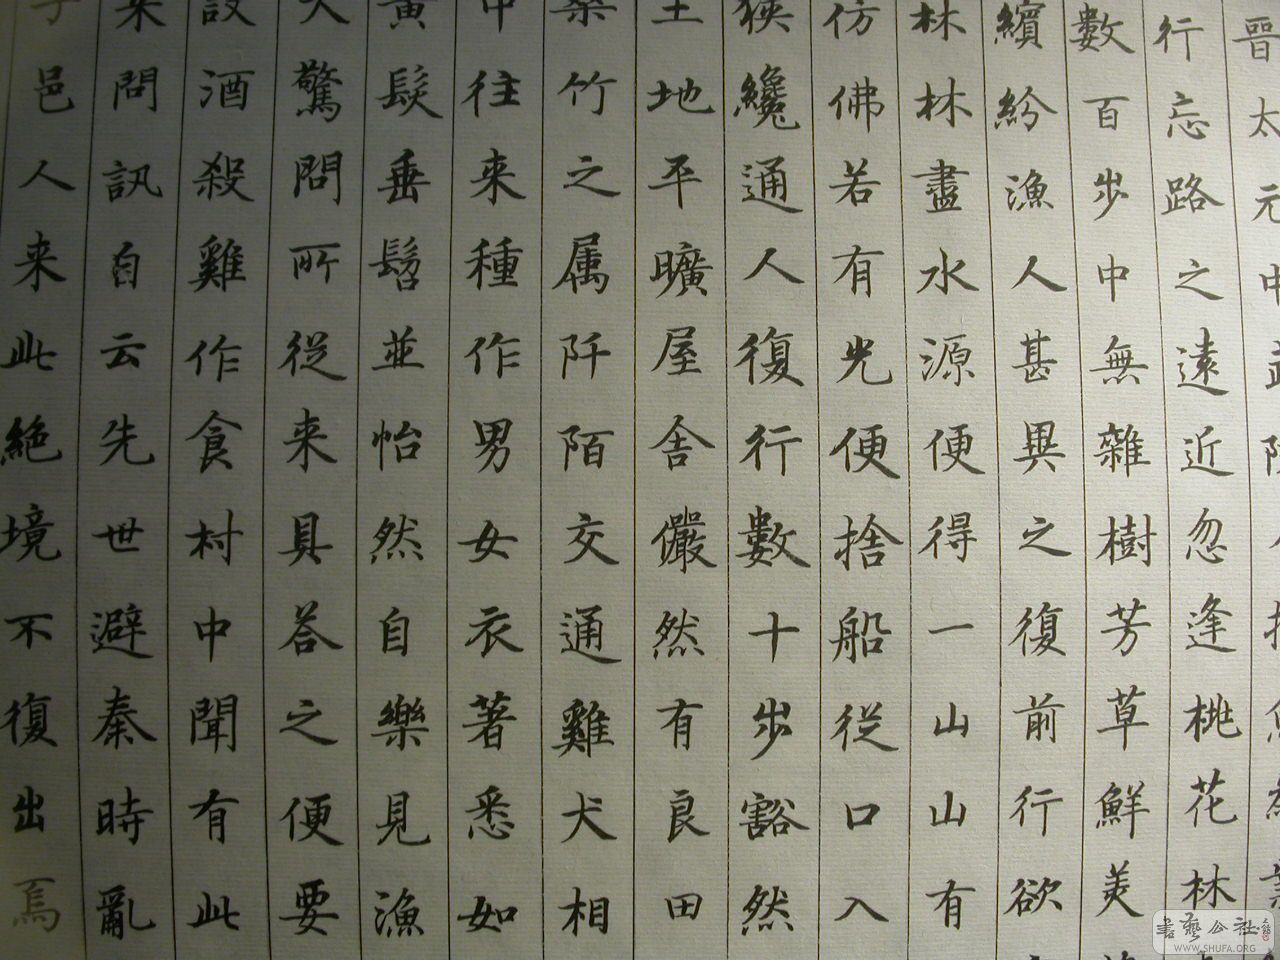 晉太元中武陵
行忘路之遠近忽逢桃花林
數百步中無雜樹芳草鮮美
繽紛漁人甚異之復前行欲
林林盡水源便得一山山有
仿佛若有光便捨船從口入
狹纔通人復行數十步豁然
土地平曠屋舍儼然有良田
桑竹之属阡陌交通雞犬相
中往来種作男女衣著悉如
黃髮垂髫並怡然自樂見漁
大驚問所從来具答之便要
設酒殺雞作食村中聞有此
来問訊自云先世避秦時亂
子邑人来此絕境不復出焉
書藝公社
WWW.SHUFA.ORG